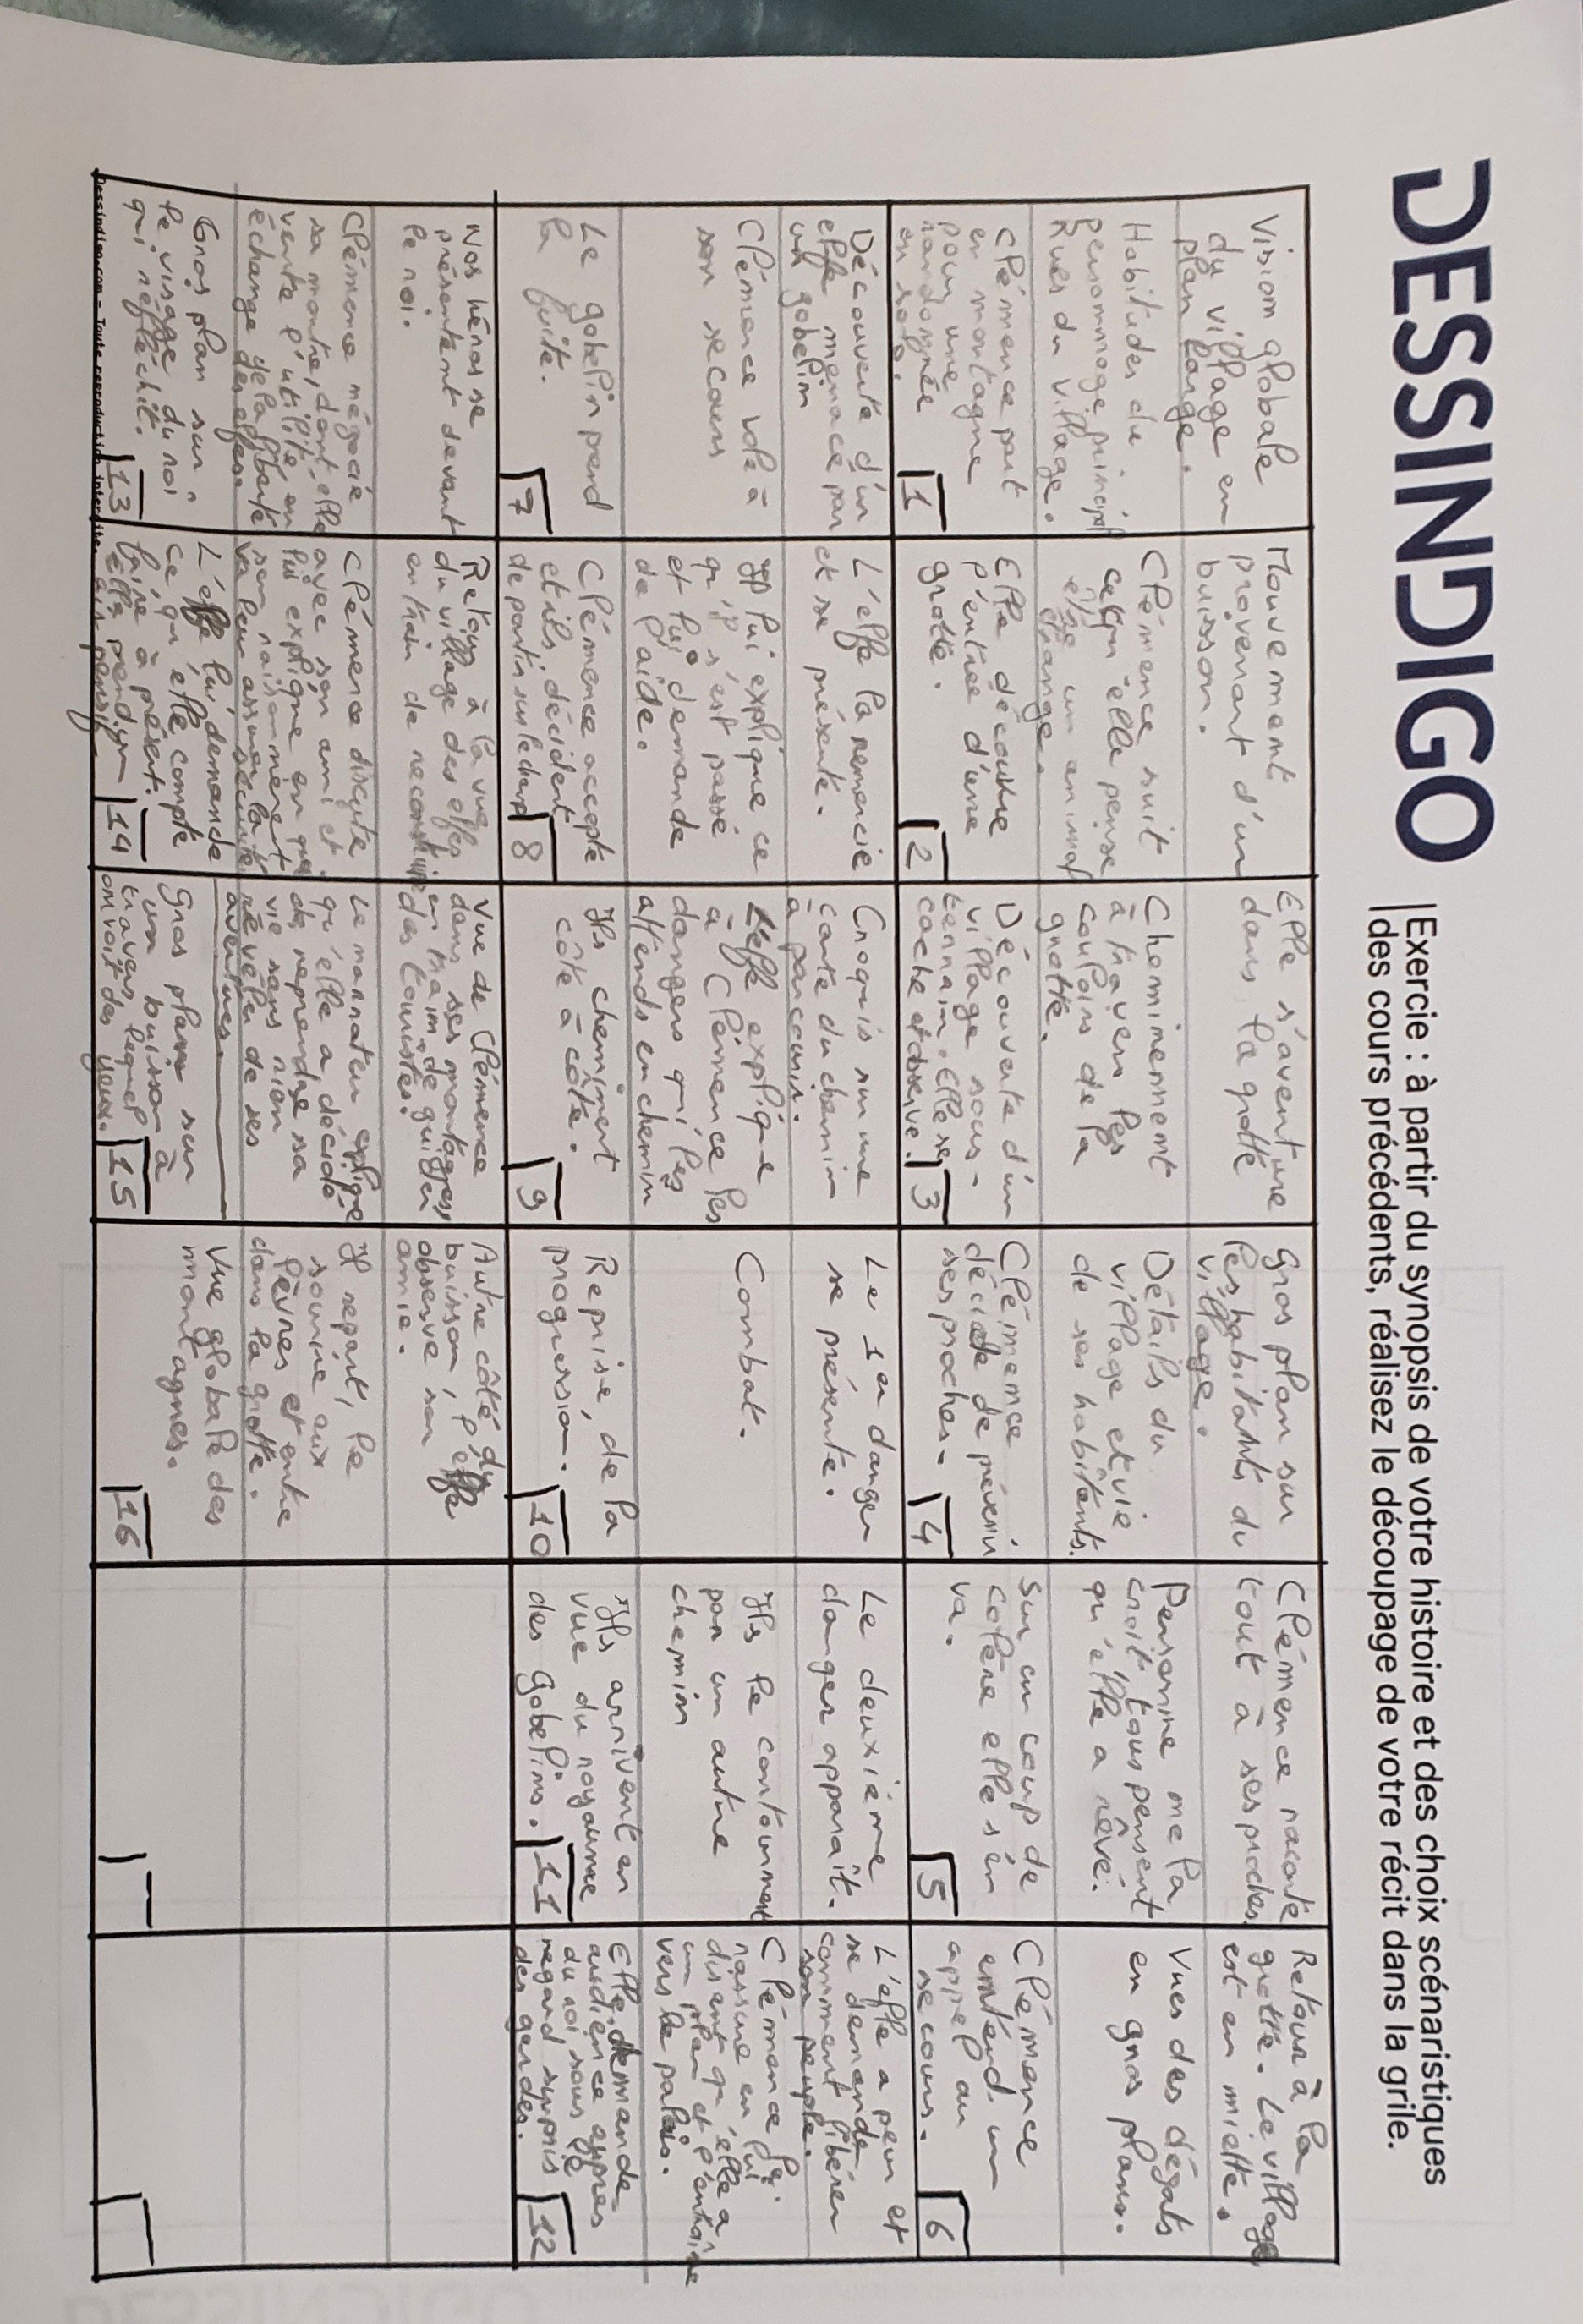 DESSINDIGO
Exercie : à partir du synopsis de votre histoire et des choix scénaristiques
des cours précédents, réalisez le découpage de votre récit dans la grile.
Vision globale
du village en
plan large.
Habitudes du
personnage principal
Rues du village.
Clémence part
en montagne
pour une
randonnée
en solo.
1
Mouvement
provenant d'un
buisson.
Clémence suit
ce qu'elle pense
être un animal
étrange.
Elle découvre
l'entrée d'une
grotte.
2
Elle s'aventure
dans la grotte
Cheminement
à travers les
couloirs de la
grotte.
Découverte d'un
village sous-
terrain. Elle se
cache et observe.
3
Gros plan sur
les habitants du
village.
Détails du
village et vie
de ses habitants.
Clémence
décide de prévenir
ses proches.
4
Clémence raconte
tout à ses proches.
Personne ne la
croit tous pensent
qu'elle a rêvé.
Sur un coup de
colère elle s'en
va.
5
Retour à la
grotte. Le village
est en miette.
Vues des dégats
en gros plans.
Clémence
entend un
appel au
secours.
6
Découverte d'un
elfe menacé par
un gobelin
Clémence vole à
son secours
Le gobelin prend
la fuite.
7
L'elfe la remercie
et se présente.
Il lui explique ce
qu'il s'est passé
et lui demande
de l'aide.
Clémence accepte
et ils décident
de partir sur le champ
8
Croquis sur une
carte du chemin
à parcourir.
L'elfe explique
à Clémence les
dangers qui les
attends en chemin
Ils cheminent
côte à côte.
9
Le 1er danger
se présente.
Combat.
Reprise de la
progression.
10
Le deuxième
danger apparaît.
Ils le contournent
par un autre
chemin
Ils arrivent en
vue du royaume
des Gobelins.
11
L'elfe a peur et
se demande
comment libérer
son peuple.
Clémence le
rassure en lui
disant qu'elle a
un plan et l'entraîne
vers le palais.
Elle demande
audience auprès
du roi sous le
regard surpris
des gardes.
12
Nos héros se
présentent devant
le roi.
Clémence négocie
sa montre, dont elle
vente l'utilité, en
échange de la liberté
des elfes
Gros plan sur
le visage du roi
qui réfléchit.
13
Retour à la vue
du village des elfes
en train de reconstruire
Clémence discute
avec son ami et
lui explique en quoi
son raisonnement
va leur assurer la
sécurité
L'elfe lui demande
ce qu'elle compte
faire à présent.
Elle prend un
air pensif
14
Vue de Clémence
dans ses montagnes
en train de guider
des touristes.
Le narrateur explique
qu'elle a décidé
de reprendre sa
vie sans rien
révéler de ses
aventures.
Gros plan sur
un buisson à
travers lequel
on voit des yeux.
15
Autre côté du
buisson, l'elfe
observe son
amie.
Il repart, le
sourire aux
lèvres et entre
dans la grotte.
Vue globale des
montagnes.
16
Dessindigo.com - Toute reproduction interdite.